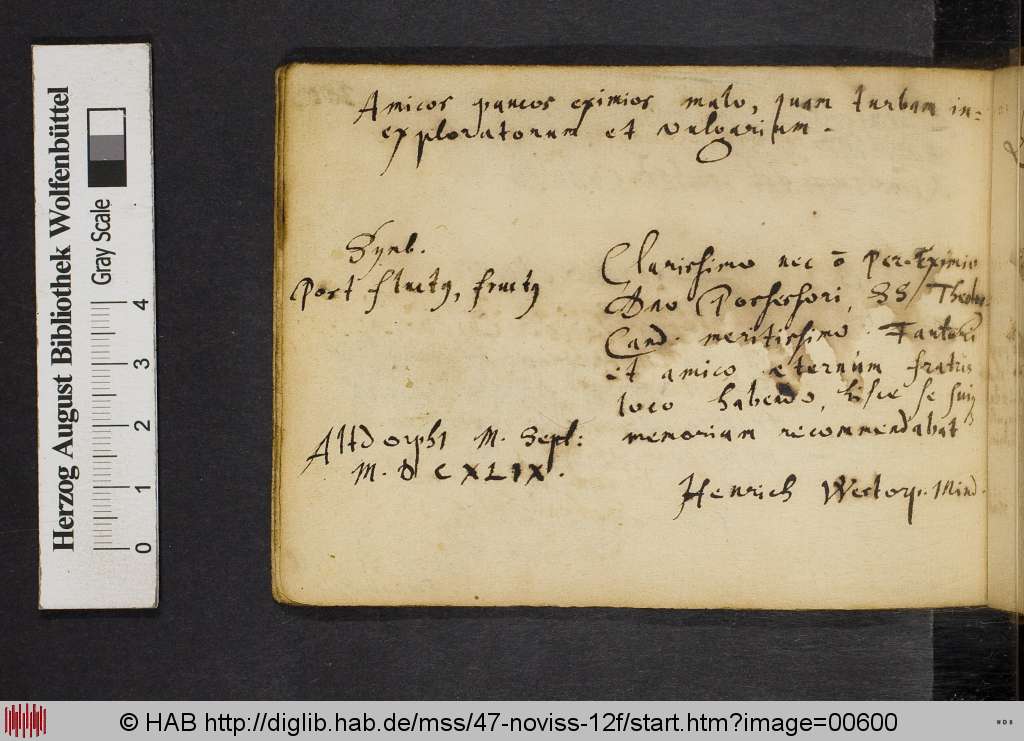 Amicos paucos eximios malo, quam turbam in=
exploratorum et vulgarium.
Symb.
Post fluctꝰ, fructꝰ
Clarissimo nec ō Per-Eximio
Dno Possessori, SS Theolo
Cand. meritissimo Fautori
et amico æternùm fratris
loco habendo, hisce se suiq
memoriam recommendabat
Altdorphi M. Sept:
M. D C XLIX.
Henrich Westorp. Mind.
Herzog August Bibliothek Wolfenbüttel
Gray Scale
0 1 2 3 4
© HAB http://diglib.hab.de/mss/47-noviss-12f/start.htm?image=00600